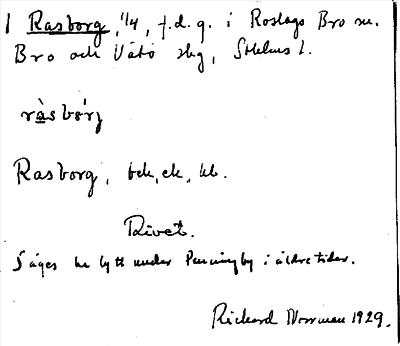 1 Rasborg, 1/4, f.d.g. i Roslags Bro sn.
Bro och Vätö skg, Sthlms l.
ràsbórj
Rasborg, bck, ek, kb.
Rivet.
Säges ha lytt under Penningby i äldre tider.
Richard Norrman 1929.